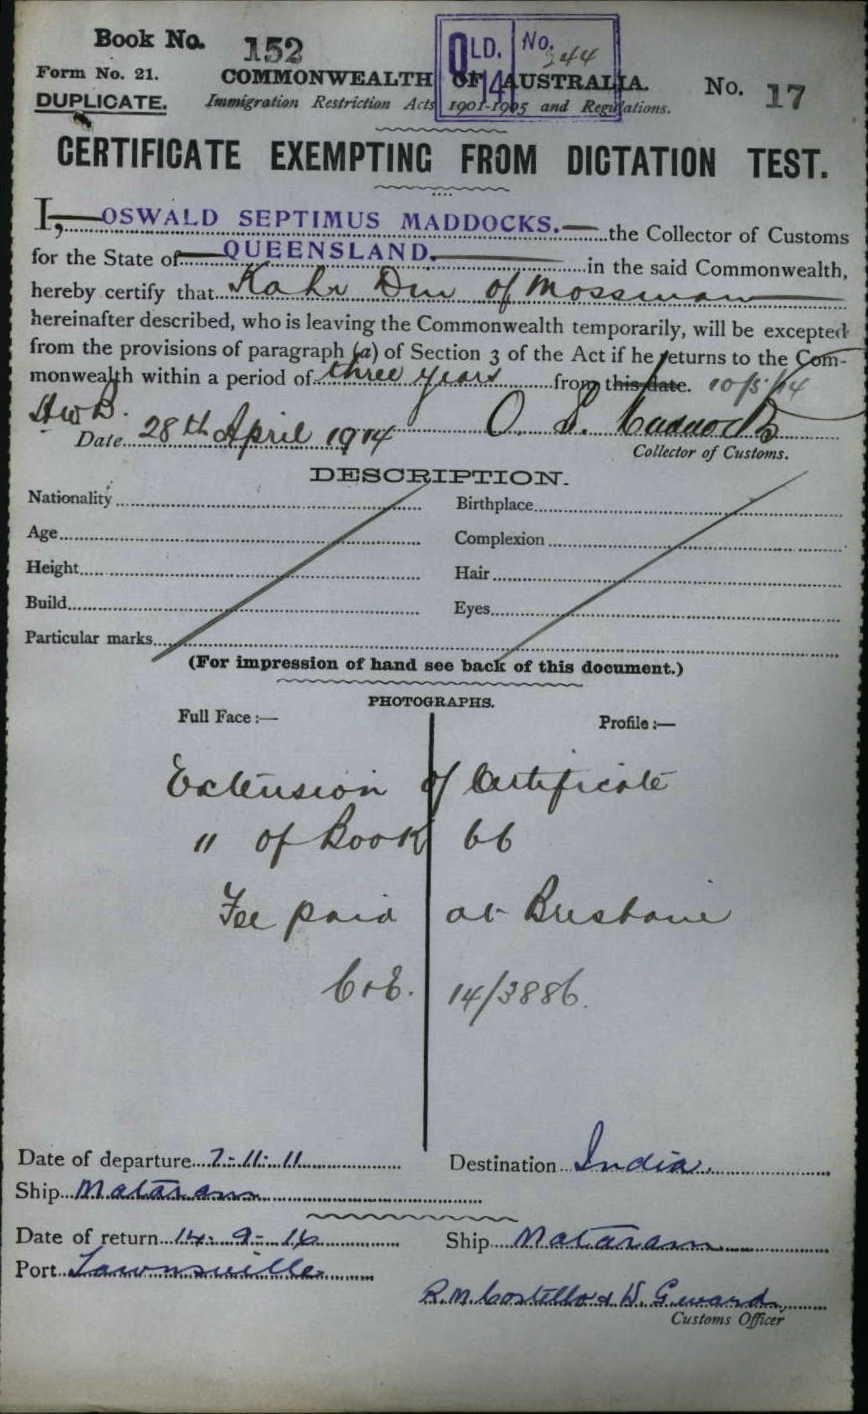 Book No. 152
Form No. 21.
DUPLICATE.
QLD. No. 244
14
COMMONWEALTH OF AUSTRALIA.
No. 17
Immigration Restriction Acts 1901-1905 and Regulations.
CERTIFICATE EXEMPTING FROM DICTATION TEST.
I, OSWALD SEPTIMUS MADDOCKS. the Collector of Customs
for the State of QUEENSLAND. in the said Commonwealth,
hereby certify that Kahr Din of Mossman
hereinafter described, who is leaving the Commonwealth temporarily, will be excepted
from the provisions of paragraph (a) of Section 3 of the Act if he returns to the Com-
monwealth within a period of three years from this date. 10/5/14
HWB.
Date 28th April 1914 O. S. Maddocks
Collector of Customs.
DESCRIPTION.
Nationality Birthplace
Age Complexion
Height Hair
Build Eyes
Particular marks
(For impression of hand see back of this document.)
PHOTOGRAPHS.
Full Face :— Profile :—
Extension of Certificate
" of Book 66
Fee paid at Brisbane
C&E. 14/3886.
Date of departure 7-11-11 Destination India.
Ship Mataram
Date of return 14-9-16 Ship Mataram
Port Townsville
R.M. Costello & W. G. ward
Customs Officer